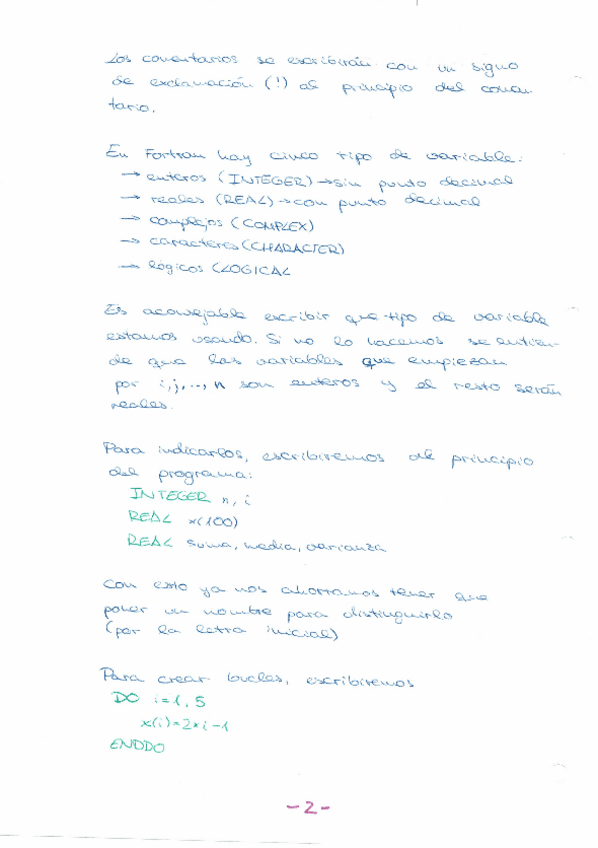 Los comentarios se escribirán con un signo
de exclamación (!) al principio del comen
tario.
En Fortran hay cinco tipo de variable:
→ enteros (INTEGER) → sin punto decimal
→ reales (REAL) → con punto decimal
→ complejos (COMPLEX)
→ caracteres (CHARACTER)
→ lógicos (LOGICAL
Es aconsejable escribir que tipo de variable
estamos usando. Si no lo hacemos se entien-
de que las variables que empiezan
por i, j, ..., n son enteros y el resto serán
reales.
Para indicarlos, escribiremos al principio
del programa:
INTEGER n, i
REAL x(100)
REAL suma, media, varianza
Con esto ya nos ahorramos tener que
poner un nombre para distinguirlo
(por la letra inicial)
Para crear bucles, escribiremos
DO i=1,5
x(i)=2*i-1
ENDDO
-2-